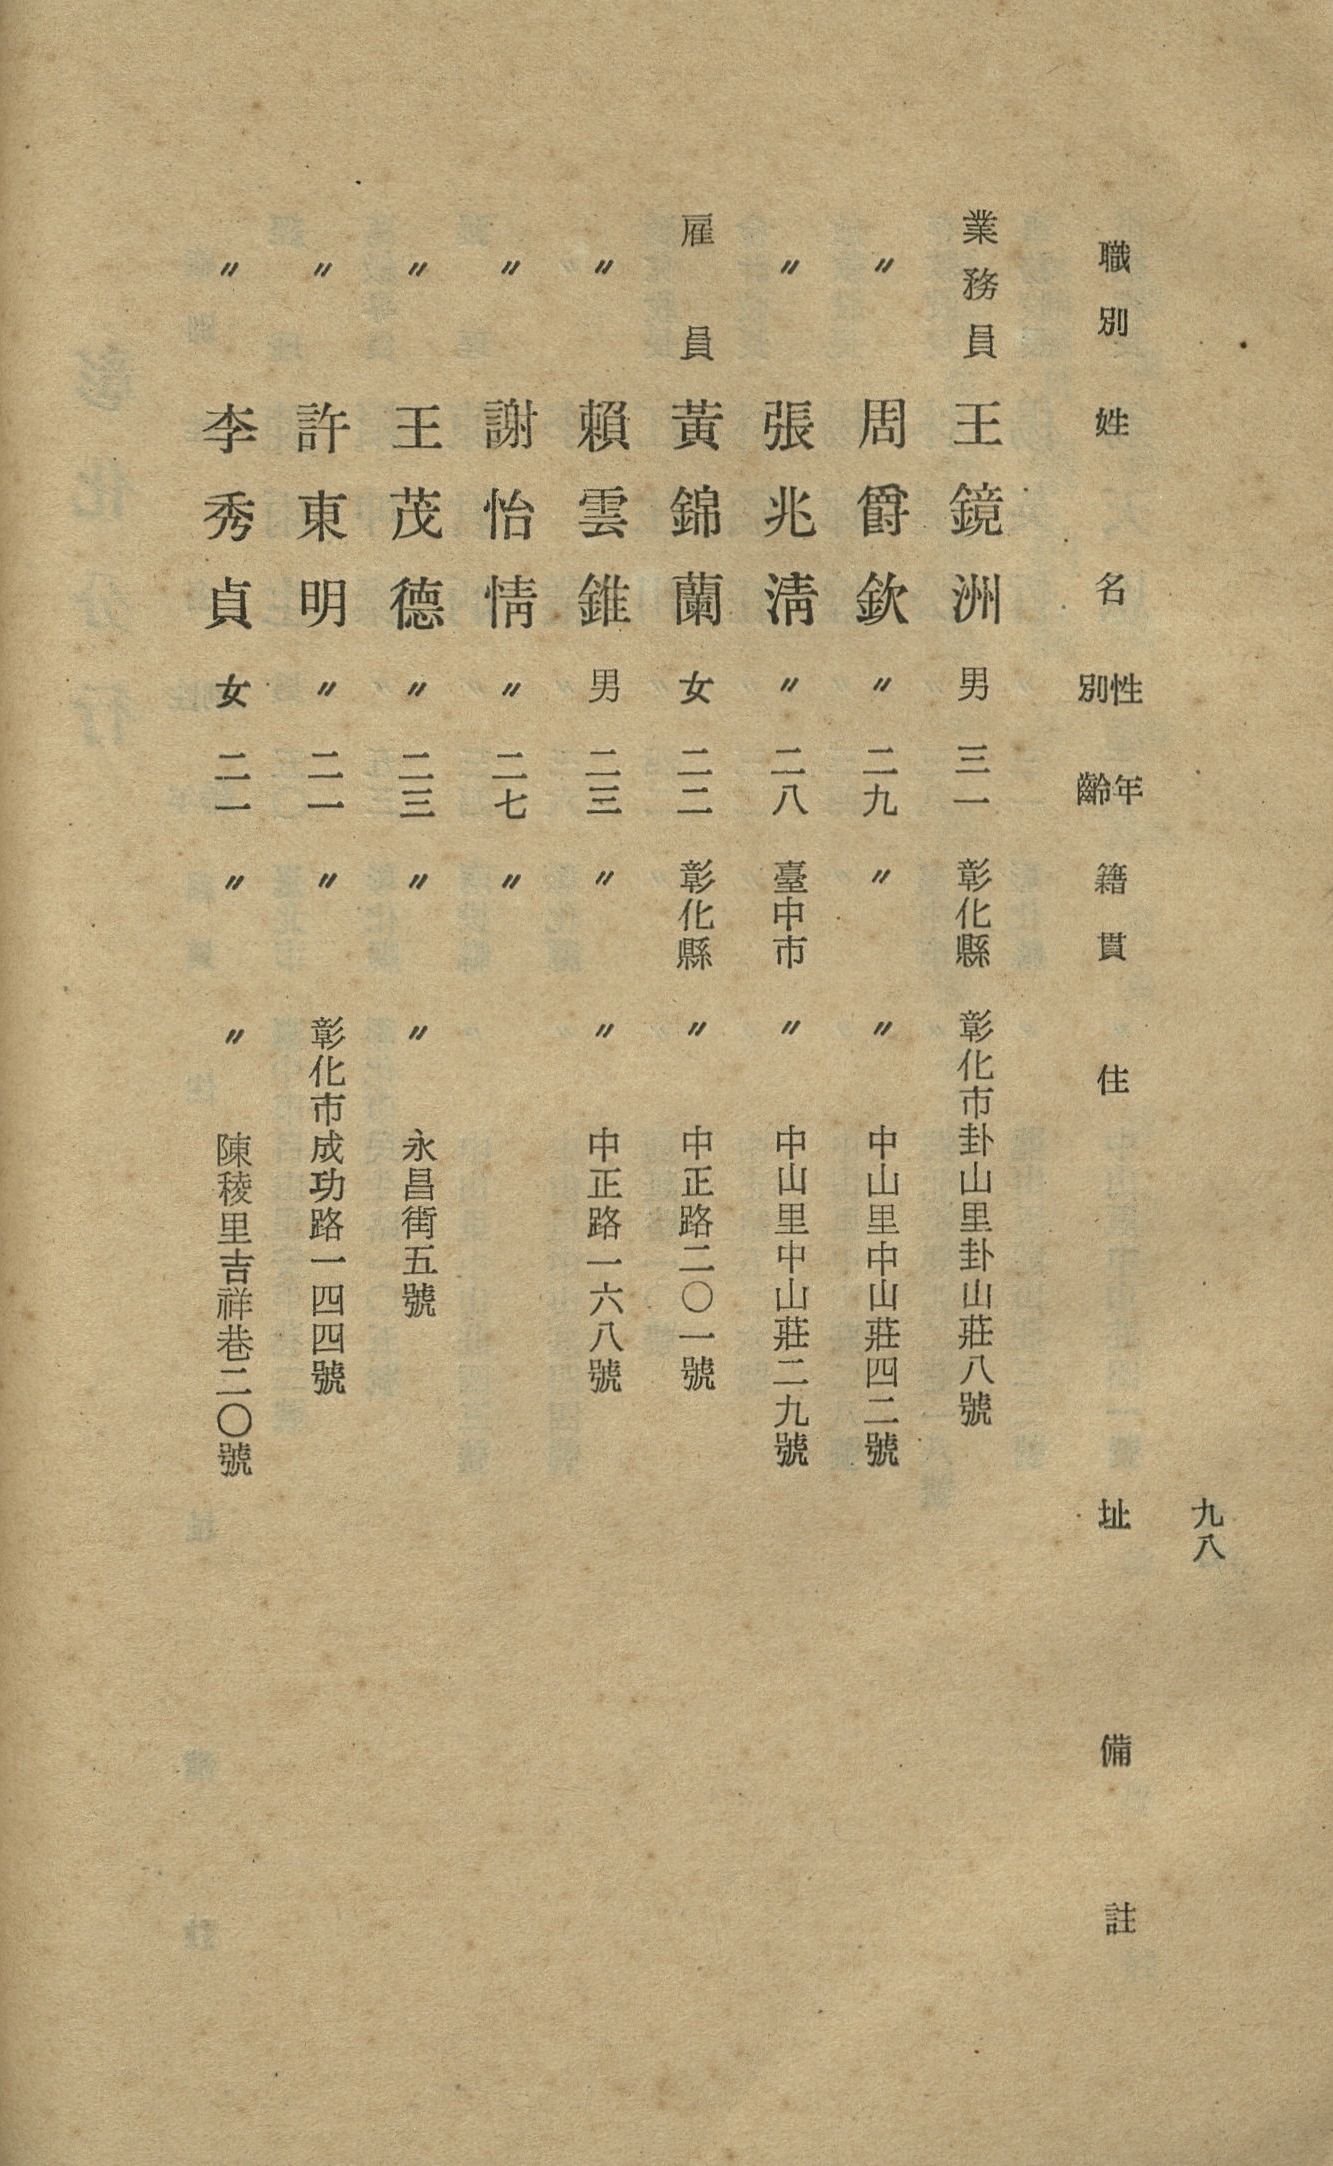 九八
職別 姓名 性別 年齡 籍貫 住址 備註
業務員 王鏡洲 男 三一 彰化縣 彰化市卦山里卦山莊八號
〃 周爵欽 〃 二九 〃 〃 中山里中山莊四二號
〃 張兆淸 〃 二八 臺中市 〃 中山里中山莊二九號
雇員 黃錦蘭 女 二二 彰化縣 〃 中正路二〇一號
〃 賴雲錐 男 二三 〃 〃 中正路一六八號
〃 謝怡情 〃 二七 〃
〃 王茂德 〃 二三 〃 〃 永昌街五號
〃 許東明 〃 二一 〃 彰化市成功路一四四號
〃 李秀貞 女 二一 〃 〃 陳稜里吉祥巷二〇號